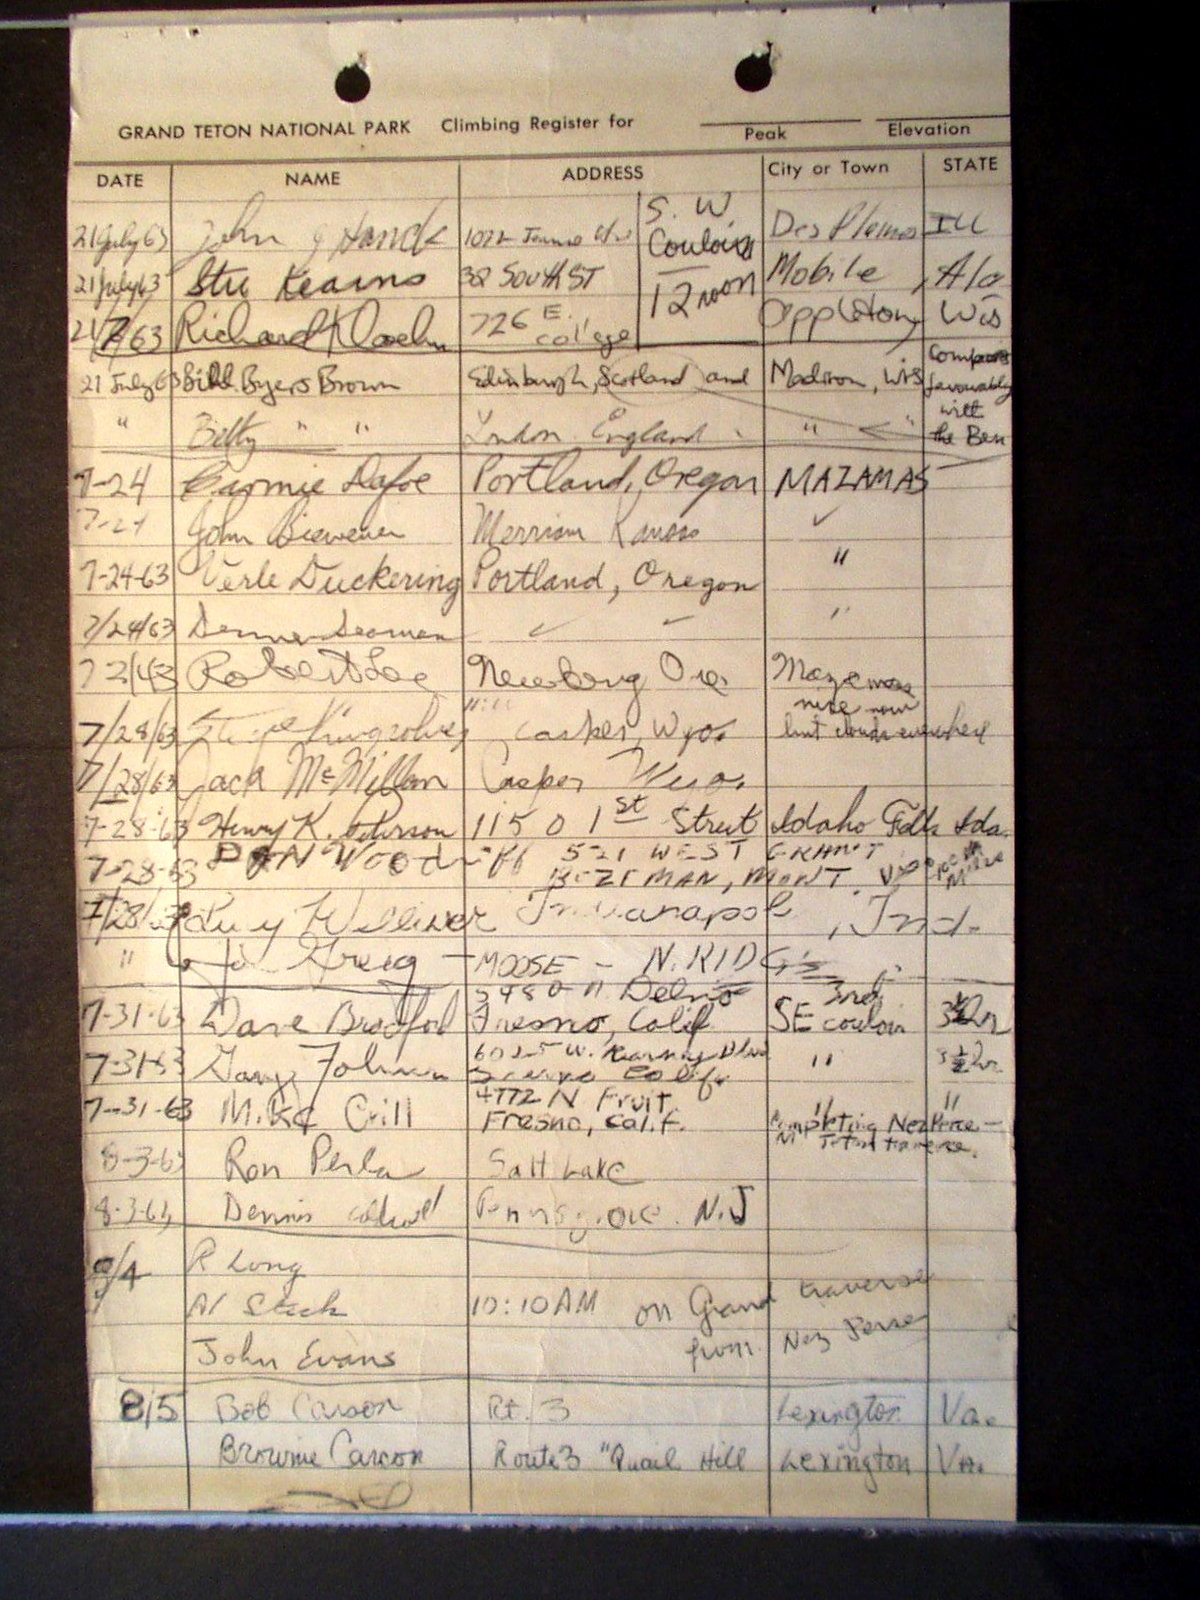 GRAND TETON NATIONAL PARK Climbing Register for Peak Elevation
DATE NAME ADDRESS City or Town STATE
21 July 63 John J Hanck 1022 S. W. Des Plaines Ill
21 July 63 Stu Kearns 32 SOUTH ST Couloir Mobile, Ala
21/7/63 Richard 726 E. college 12 noon Appleton, Wis
21 July 63 Bill Byers Brown Edinburgh, Scotland and Madison, Wis Compares favourably with the Ben
" Betty " " London England " "
7-24 Carmie Dafoe Portland, Oregon MAZAMAS
7-24 John Biewener Merriam Kansas ✓
7-24-63 Verle Duckering Portland, Oregon "
7/24/63 Seaman ✓ ✓ "
Robert Lee Newberg Ore. Mazamas
nice now
7/28/63 Kingsolver Casper, Wyo. but clouds everywhere
7/28/63 Jack McMillan Casper Wyo.
7-28-63 Henry K. 1150 1st Street Idaho Falls Ida.
7-28-63 DAN Woodriff 521 WEST GRANT
BOZEMAN, MONT.
7/28/63 Indianapolis, Ind.
" Greig - MOOSE - N. RIDGE
7-31-63 Dave Bradford 5480 N Delno Fresno, Calif. SE 3rd couloir 3½ hr
7-31-63 Gary 6025 W. Kearney Blvd Fresno Calif. " 3½ hr.
7-31-63 Mike Crill 4772 N Fruit Fresno, Calif. " "
Completing Nez Perce - Teton traverse.
8-3-63 Ron Perla Salt Lake
8-3-63 Dennis Pennsgrove N.J
8/4 R Long
Al Steck 10:10 AM on Grand traverse
John Evans from Nez Perse
8/5 Bob Carson Rt. 3 Lexington Va.
Brownie Carson Route 3 "Quail Hill Lexington Va.